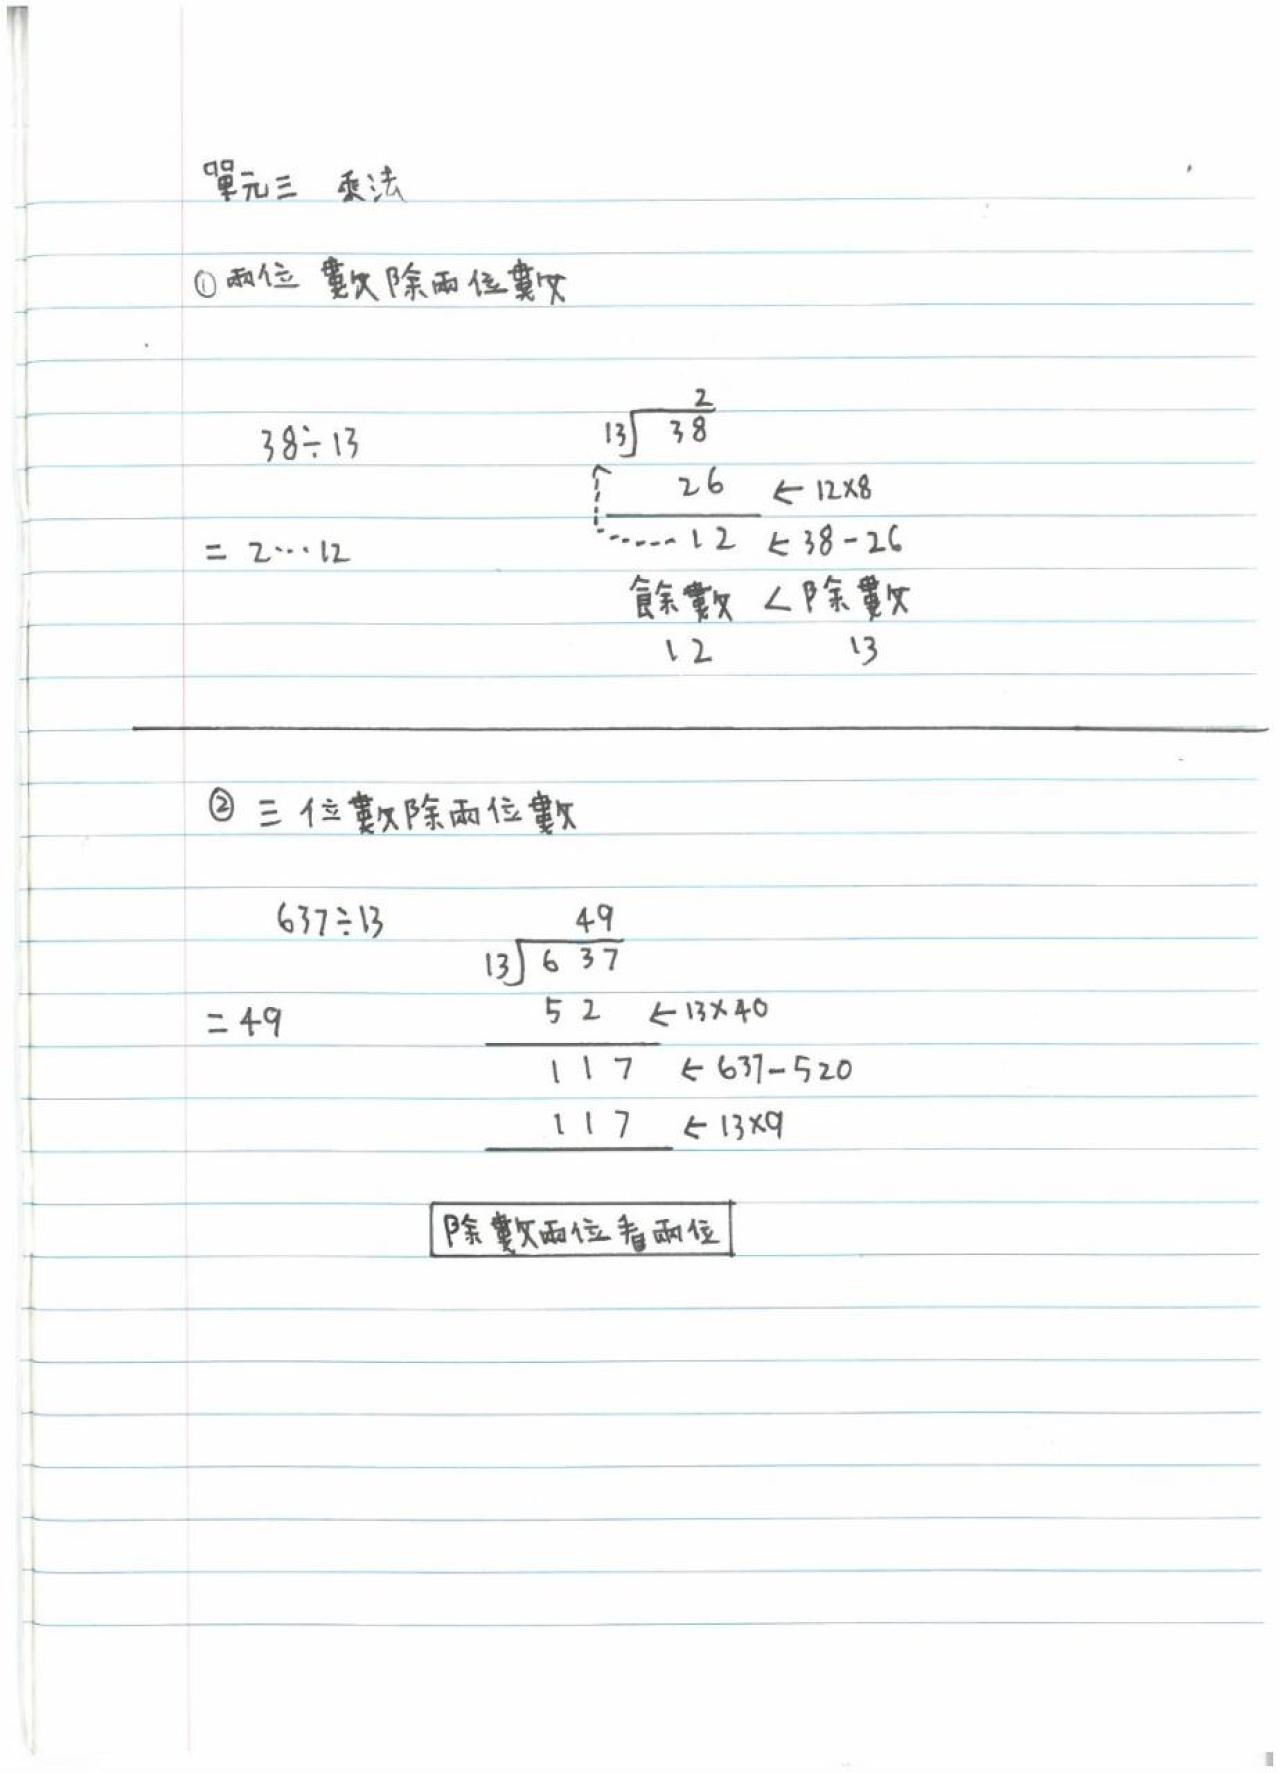 單元三 乘法
①兩位數除兩位數
38÷13
2
13 38
26 ←12×8
= 2…12
12 ←38-26
餘數 < 除數
12 13
② 三位數除兩位數
637÷13
49
13 637
= 49
52 ←13×40
117 ←637-520
117 ←13×9
除數兩位看兩位